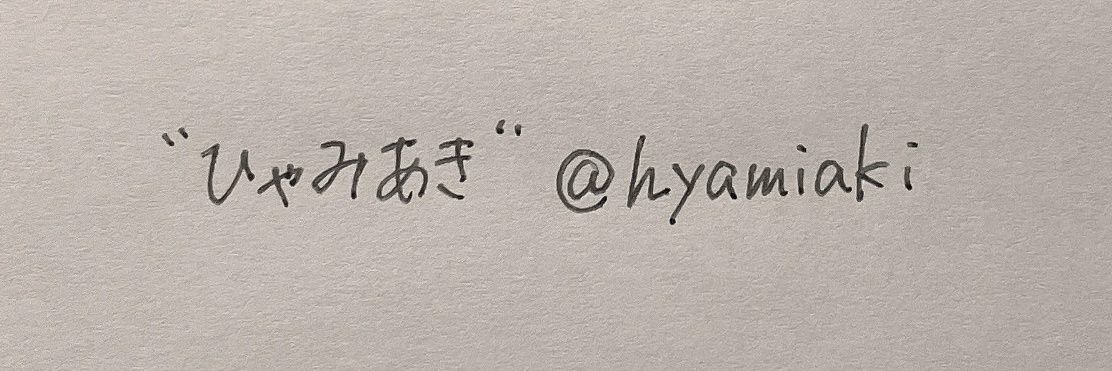 “ひゃみあき“ @hyamiaki